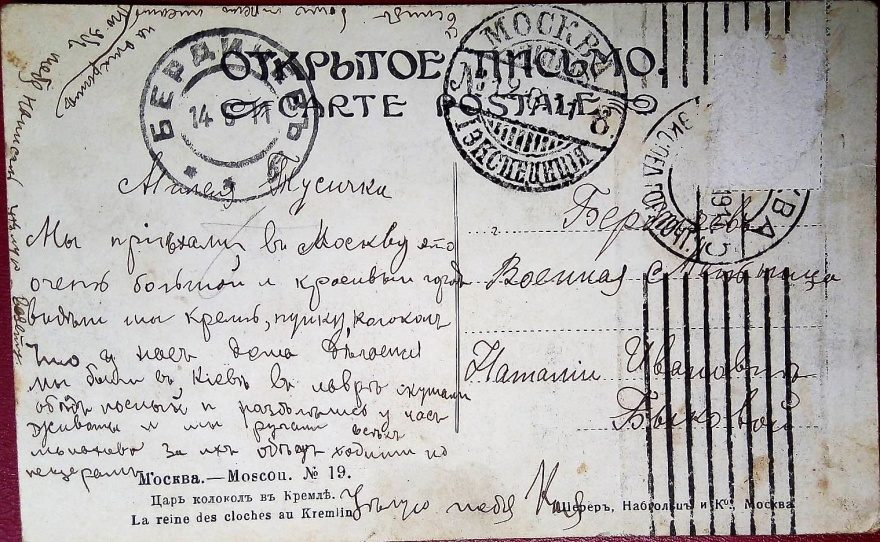 ОТКРЫТОЕ ПИСЬМО.
CARTE POSTALE
БЕРДИЧЕВЪ
14 11
МОСКВА
8
1 ЭКСПЕДИЦІЯ
Милая Тусичка
Мы пріѣхали въ Москву это
очень большой и красивый городъ
видѣли мы кремль, пушку, колоколъ
Что у насъ дома дѣлается
мы были въ Кіевѣ въ лаврѣ скушали
обѣдъ посный и разболѣлись у насъ
животы и мы ругали всѣхъ
монаховъ за ихъ обѣдъ ходили по
пещерамъ
Цѣлую тебя Катя
г. Бердичевъ
Военная
Наталіи Ивановнѣ
Быковой
Москва.—Moscou. № 19.
Царь колоколъ въ Кремлѣ.
La reine des cloches au Kremlin
Шереръ, Набгольцъ и Ко., Москва